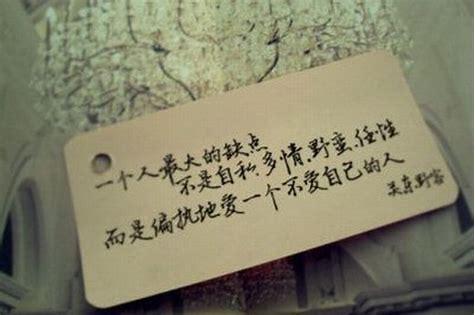 一个人最大的缺点
不是自私、多情、野蛮、任性
而是偏执地爱一个不爱自己的人
关东野客